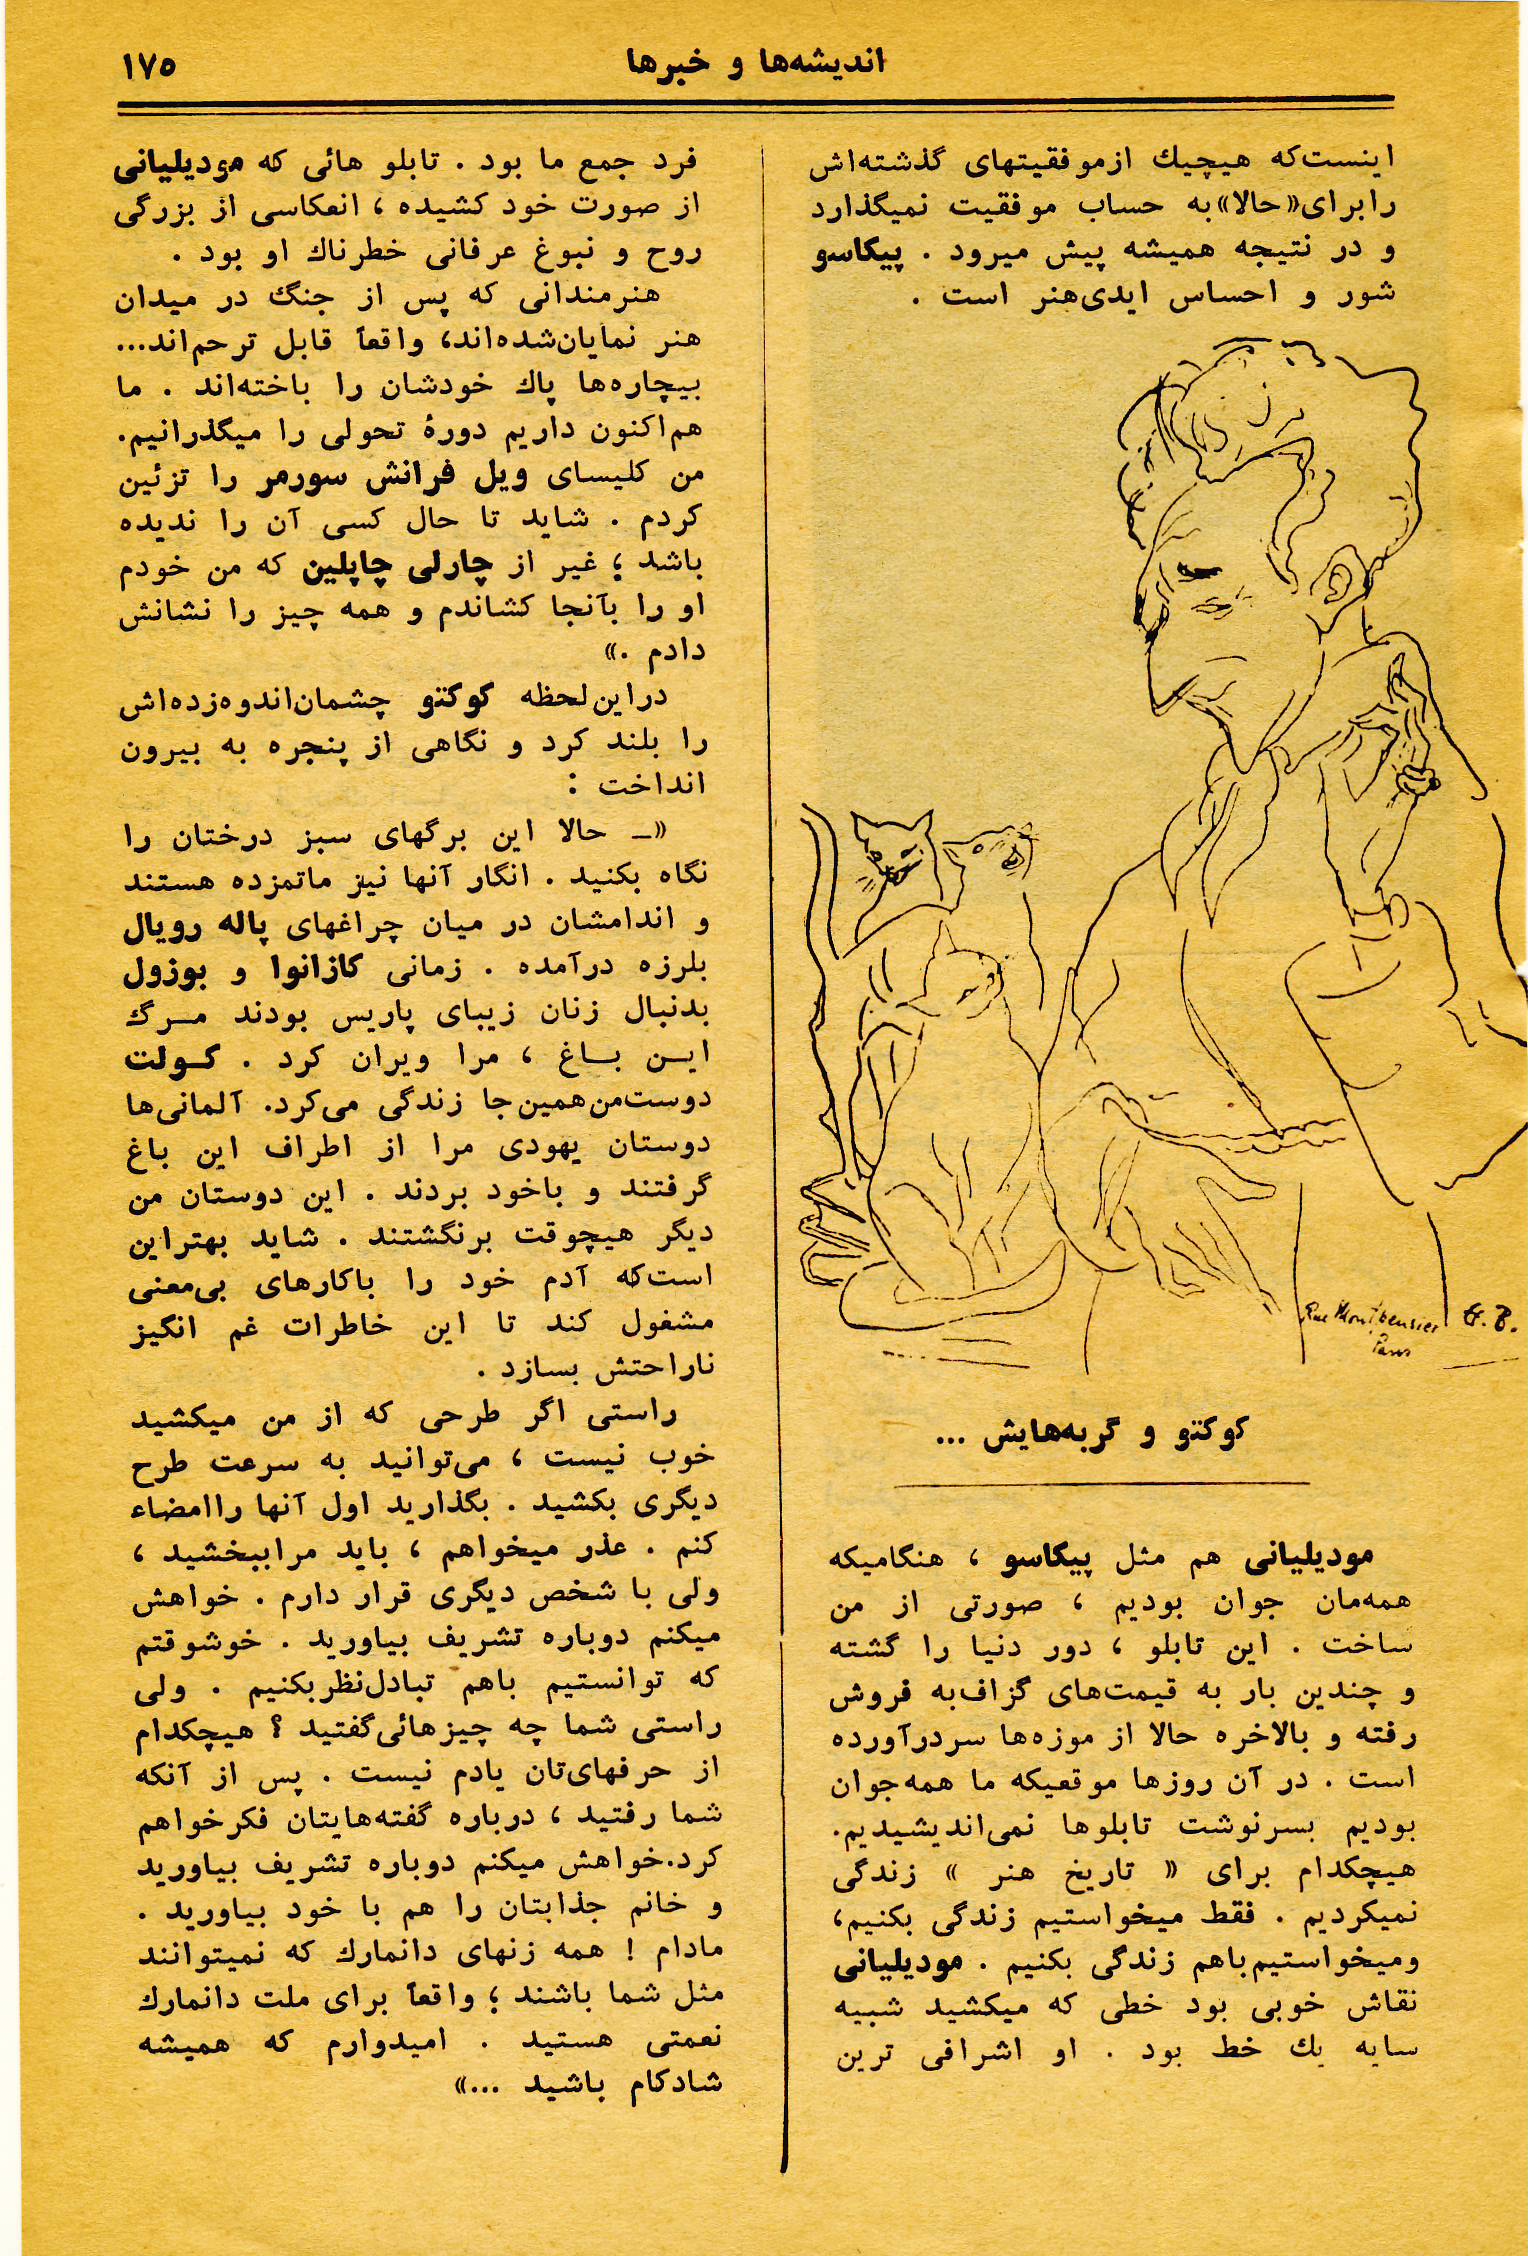 اندیشه‌ها و خبرها
۱۷۵
اینست‌که هیچیك ازموفقیتهای گذشته‌اش
رابرای«حالا»به حساب موفقیت نمیگذارد
و در نتیجه همیشه پیش میرود . پیکاسو
شور و احساس ابدی‌هنر است .
Rue Montpensier
Paris
کوکتو و گربه‌هایش ...
مودیلیانی هم مثل پیکاسو ، هنگامیکه
همه‌مان جوان بودیم ، صورتی از من
ساخت . این تابلو ، دور دنیا را گشته
و چندین بار به قیمت‌های گزاف‌به فروش
رفته و بالاخره حالا از موزه‌ها سردرآورده
است . در آن روزها موقعیکه ما همه‌جوان
بودیم بسرنوشت تابلوها نمی‌اندیشیدیم.
هیچکدام برای « تاریخ هنر » زندگی
نمیکردیم . فقط میخواستیم زندگی بکنیم،
ومیخواستیم‌باهم زندگی بکنیم . مودیلیانی
نقاش خوبی بود خطی که میکشید شبیه
سایه یك خط بود . او اشرافی ترین
فرد جمع ما بود . تابلو هائی که مودیلیانی
از صورت خود کشیده ، انعکاسی از بزرگی
روح و نبوغ عرفانی خطرناك او بود .
هنرمندانی که پس از جنگ در میدان
هنر نمایان‌شده‌اند، واقعاً قابل ترحم‌اند...
بیچاره‌ها پاك خودشان را باخته‌اند . ما
هم‌اکنون داریم دورهٔ تحولی را میگذرانیم.
من کلیسای ویل فرانش سورمر را تزئین
کردم . شاید تا حال کسی آن را ندیده
باشد ؛ غیر از چارلی چاپلین که من خودم
او را بآنجا کشاندم و همه چیز را نشانش
دادم .»
دراین‌لحظه کوکتو چشمان‌اندوه‌زده‌اش
را بلند کرد و نگاهی از پنجره به بیرون
انداخت :
«ـ حالا این برگهای سبز درختان را
نگاه بکنید . انگار آنها نیز ماتمزده هستند
و اندامشان در میان چراغهای پاله رویال
بلرزه درآمده . زمانی کازانوا و بوزول
بدنبال زنان زیبای پاریس بودند مـرگ
ایـن بـاغ ، مرا ویران کرد . کـولت
دوست‌من‌همین‌جا زندگی می‌کرد. آلمانی‌ها
دوستان یهودی مرا از اطراف این باغ
گرفتند و باخود بردند . این دوستان من
دیگر هیچوقت برنگشتند . شاید بهتراین
است‌که آدم خود را باکارهای بی‌معنی
مشغول کند تا این خاطرات غم انگیز
ناراحتش بسازد .
راستی اگر طرحی که از من میکشید
خوب نیست ، می‌توانید به سرعت طرح
دیگری بکشید . بگذارید اول آنها راامضاء
کنم . عذر میخواهم ، باید مراببخشید ،
ولی با شخص دیگری قرار دارم . خواهش
میکنم دوباره تشریف بیاورید . خوشوقتم
که توانستیم باهم تبادل‌نظربکنیم . ولی
راستی شما چه چیزهائی‌گفتید ؟ هیچکدام
از حرفهای‌تان یادم نیست . پس از آنکه
شما رفتید ، درباره گفته‌هایتان فکرخواهم
کرد.خواهش میکنم دوباره تشریف بیاورید
و خانم جذابتان را هم با خود بیاورید .
مادام ! همه زنهای دانمارك که نمیتوانند
مثل شما باشند ؛ واقعاً برای ملت دانمارك
نعمتی هستید . امیدوارم که همیشه
شادکام باشید ...»